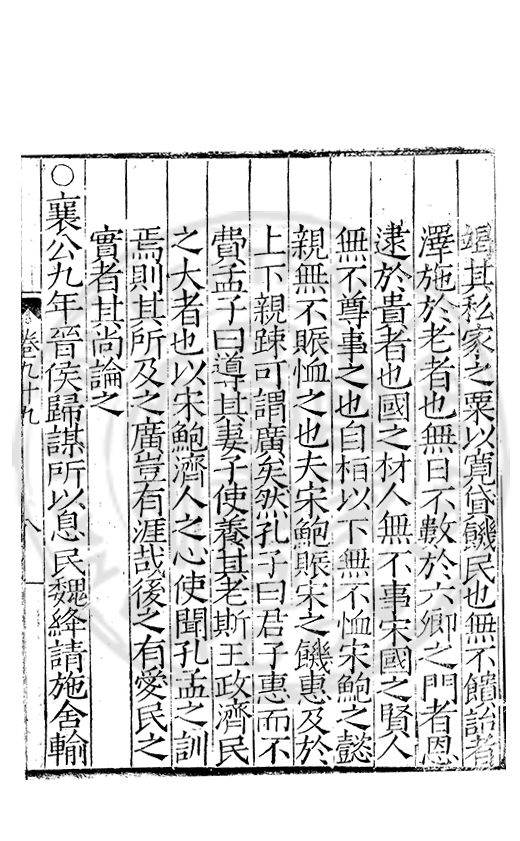 竭其私家之粟以寬貸饑民也無不饋詒者
澤施於老者也無日不數於六卿之門者恩
逮於貴者也國之材人無不事宋國之賢人
無不尊事之也自桓以下無不恤宋鮑之懿
親無不賑恤之也夫宋鮑賑宋之饑惠及於
上下親踈可謂廣矣然孔子曰君子惠而不
費孟子曰導其妻子使養其老斯王政濟民
之大者也以宋鮑濟人之心使聞孔孟之訓
焉則其所及之廣豈有涯哉後之有愛民之
實者其尚論之
○襄公九年晉侯歸謀所以息民魏絳請施舍輸
卷九十九
八